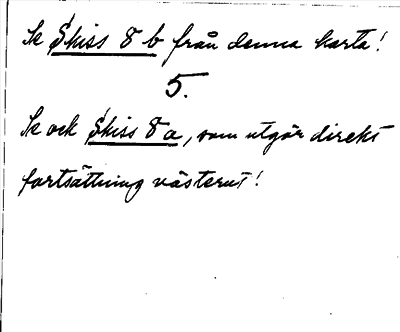 Se Skiss 8 b från denna karta!
5.
Se och Skiss 8 a, som utgör direkt
fortsättning västerut!